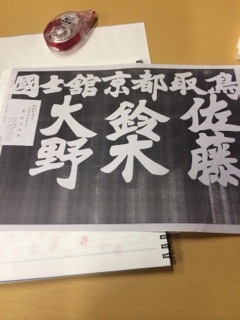 國士舘京都取鳥
佐藤
鈴木
大野